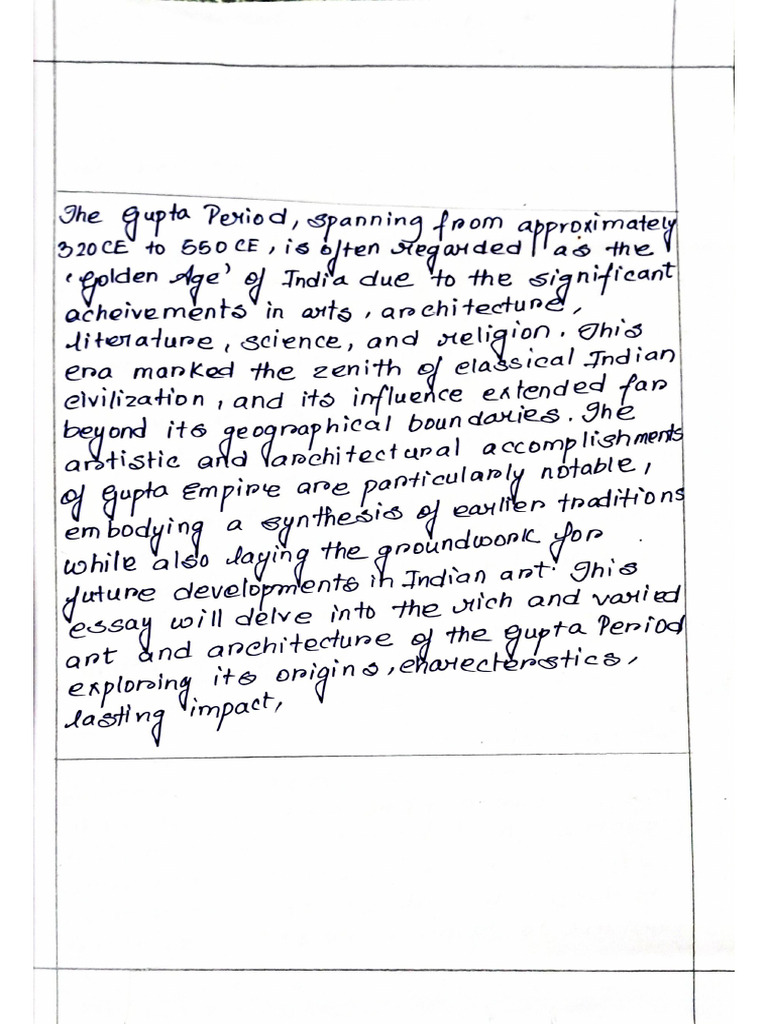 The Gupta Period, spanning from approximately
320 CE to 550 CE, is often regarded as the
'Golden Age' of India due to the significant
acheivements in arts, architecture,
literature, science, and religion. This
era marked the zenith of classical Indian
civilization, and its influence extended far
beyond its geographical boundaries. The
artistic and architectural accomplishments
of Gupta Empire are particularly notable,
embodying a synthesis of earlier traditions
while also laying the groundwork for
future developments in Indian art. This
essay will delve into the rich and varied
art and architecture of the Gupta Period
exploring its origins, charecterstics,
lasting impact,